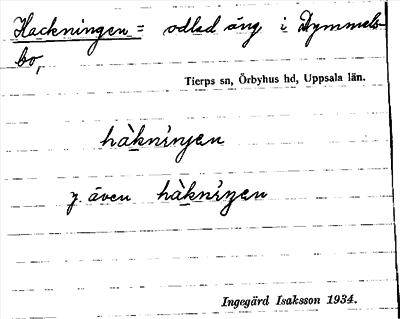 Hackningen = odlad äng i Dymmels-
bo,
Tierps sn, Örbyhus hd, Uppsala län.
hàkníŋen
y. även hàkníŋen
Ingegärd Isaksson 1934.